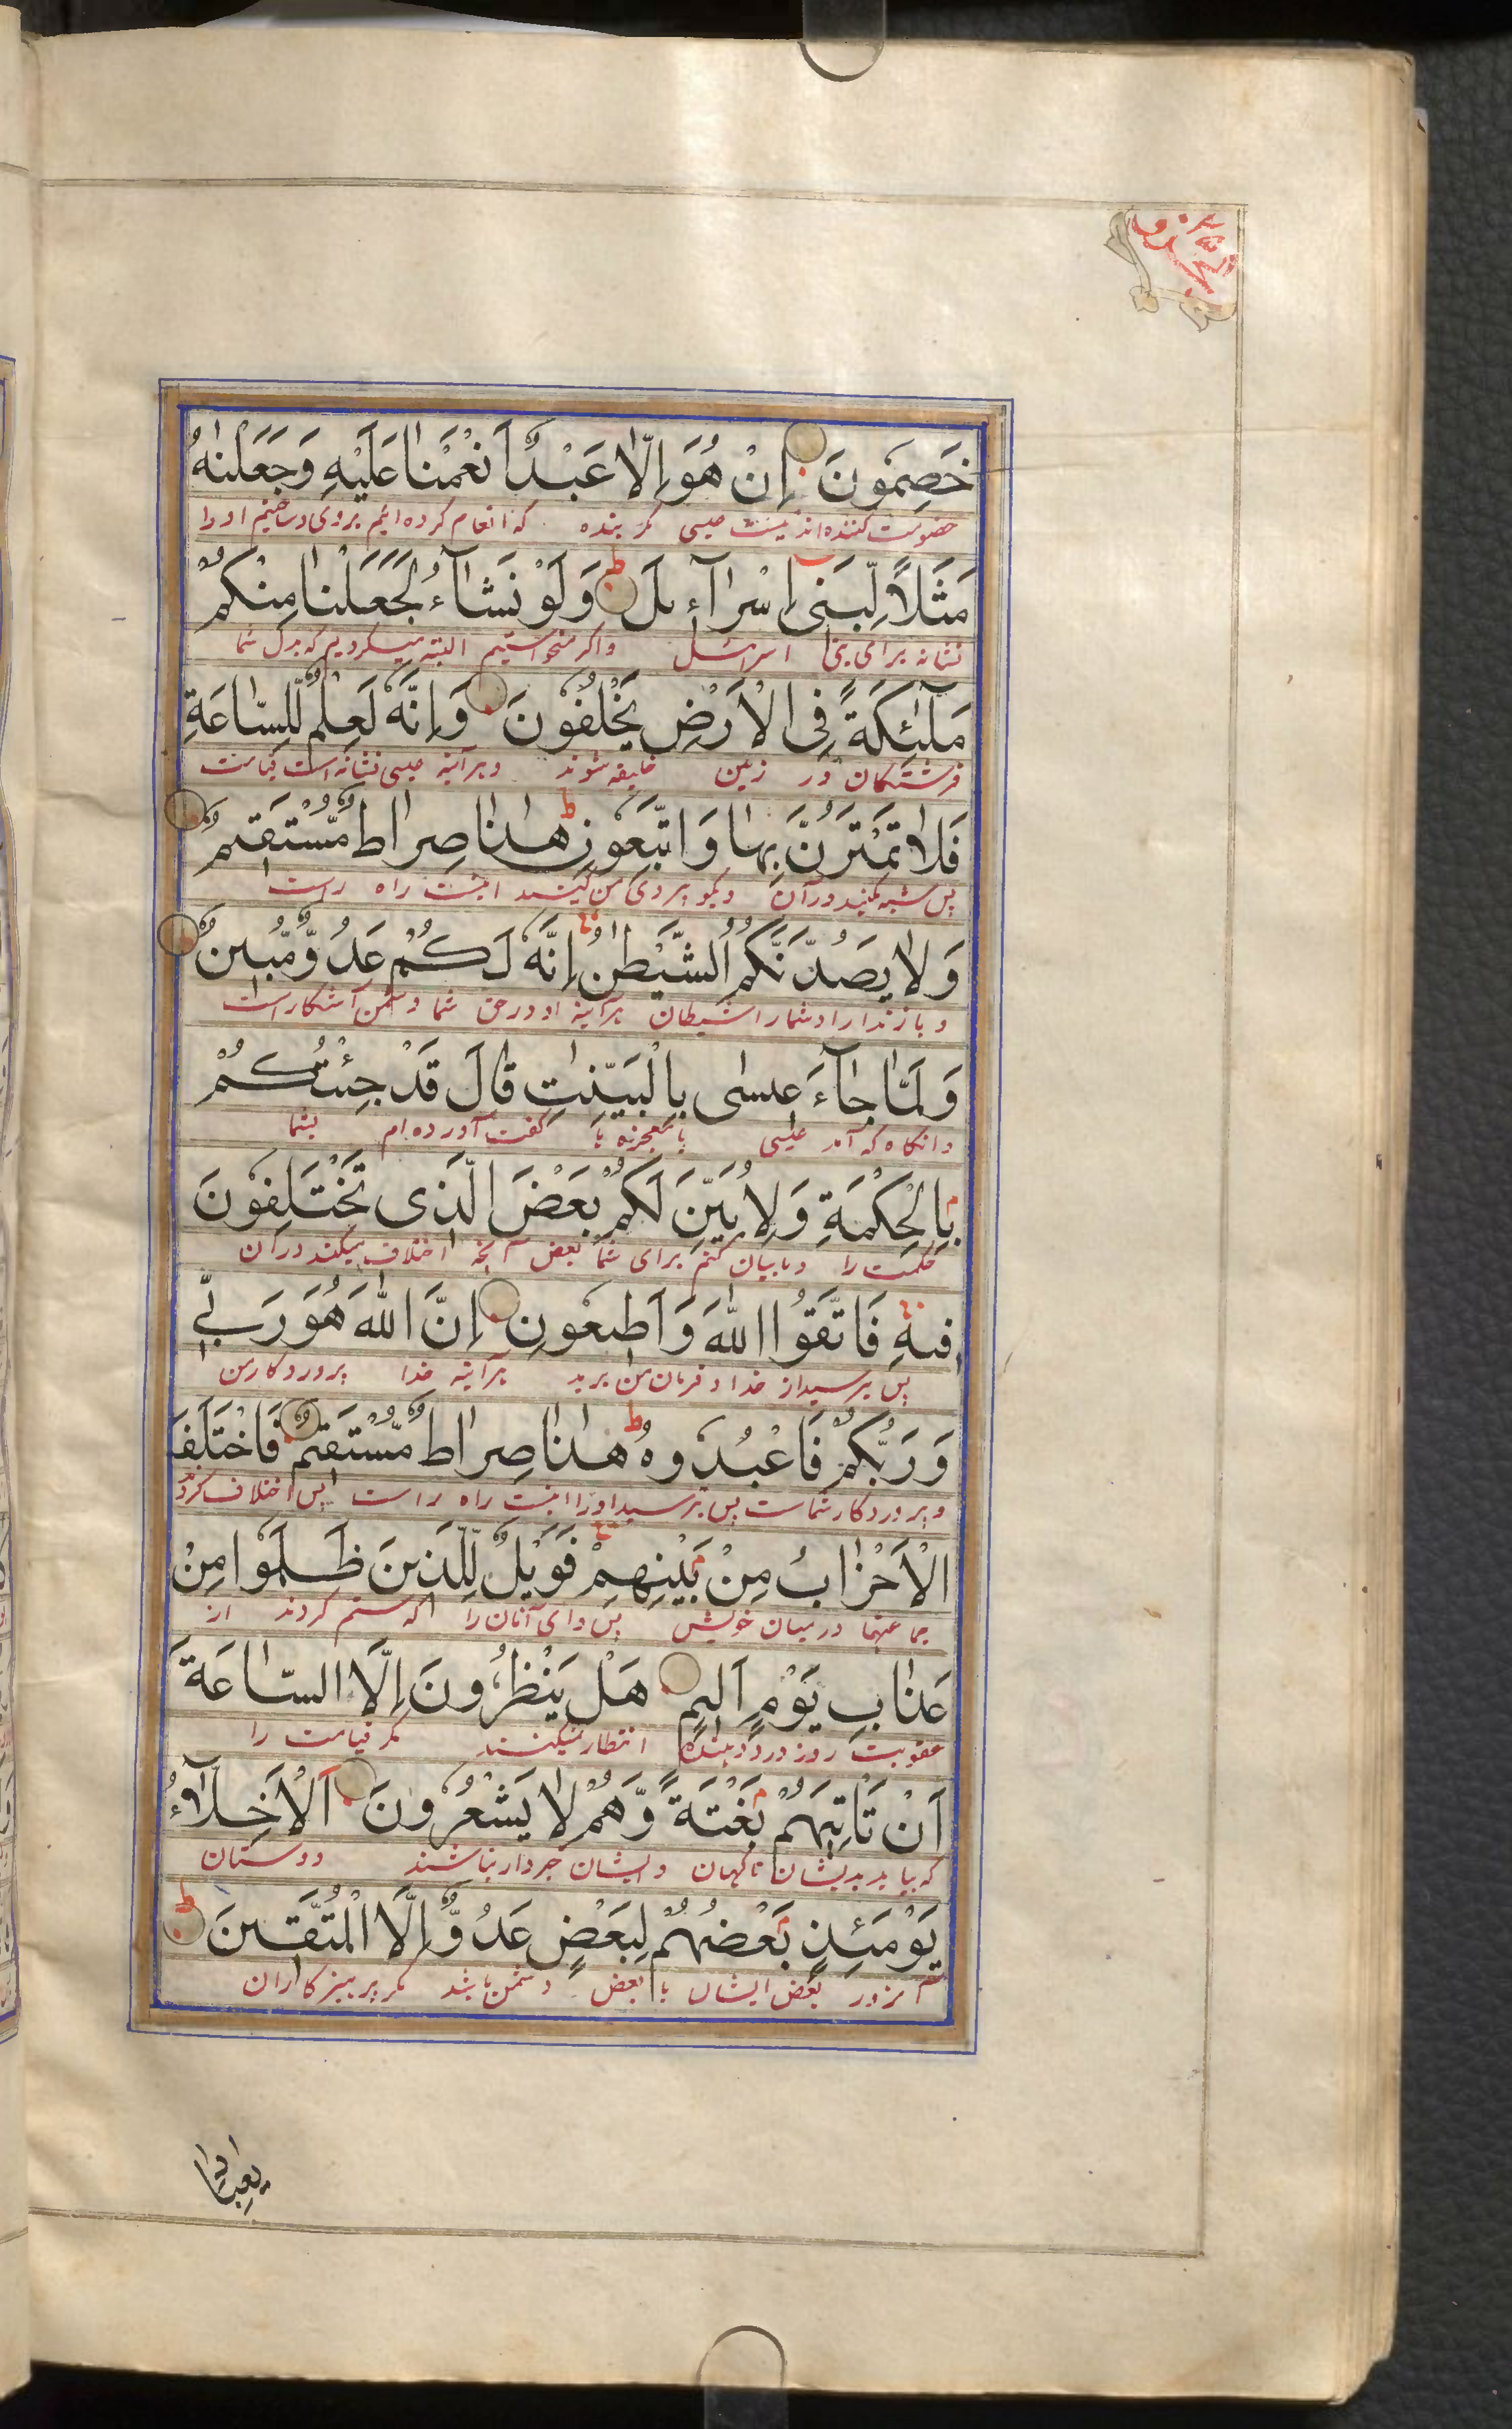 خَصِمُونَ اِنْ هُوَ اِلَّا عَبْدٌ اَنْعَمْنَا عَلَيْهِ وَجَعَلْنٰهُ
خصومت کننده‌اند نیست عیسی مگر بنده که انعام کرده ایم بروی و ساختیم او را
مَثَلًا لِّبَنِىٓ اِسْرَآءِيلَ ط وَلَوْ نَشَآءُ لَجَعَلْنَا مِنْكُمْ
نشانه برای بنی اسرائیل و اگر میخواستیم البته میکردیم که بدل شما
مَلٰٓئِكَةً فِى الْاَرْضِ يَخْلُفُونَ وَاِنَّهٗ لَعِلْمٌ لِّلسَّاعَةِ
فرشتگان در زمین خلیفه شوند و هر آئینه عیسی نشانه است قیامت
فَلَا تَمْتَرُنَّ بِهَا وَاتَّبِعُونِ ط هٰذَا صِرَاطٌ مُّسْتَقِيمٌ
پس شبه مکنید در آن و بگو پیروی من کنید اینست راه راست
وَلَا يَصُدَّنَّكُمُ الشَّيْطٰنُ اِنَّهٗ لَكُمْ عَدُوٌّ مُّبِينٌ
و باز ندارد شما را شیطان هر آئینه او در حق شما دشمن آشکار است
وَلَمَّا جَآءَ عِيسٰى بِالْبَيِّنٰتِ قَالَ قَدْ جِئْتُكُمْ
و آنگاه که آمد عیسی با معجزه ها گفت آورده ام بشما
بِالْحِكْمَةِ وَلِاُبَيِّنَ لَكُمْ بَعْضَ الَّذِى تَخْتَلِفُونَ
حکمت را و تا بیان کنم برای شما بعض آنچه اختلاف میکنند در آن
فِيهِ فَاتَّقُوا اللّٰهَ وَاَطِيعُونِ اِنَّ اللّٰهَ هُوَ رَبِّى
پس بترسید از خدا و فرمان من برید هر آئینه خدا پروردگار من
وَرَبُّكُمْ فَاعْبُدُوهُ ط هٰذَا صِرَاطٌ مُّسْتَقِيمٌ فَاخْتَلَفَ
و پروردگار شماست پس بپرستید او را اینست راه راست پس اختلاف کردند
الْاَحْزَابُ مِنْ بَيْنِهِمْ فَوَيْلٌ لِّلَّذِينَ ظَلَمُوا مِنْ
جماعتها درمیان خویش پس وای آنان را که ستم کردند از
عَذَابِ يَوْمٍ اَلِيمٍ هَلْ يَنْظُرُونَ اِلَّا السَّاعَةَ
عقوبت روز درد دهنده انتظار نمیکنند مگر قیامت را
اَنْ تَاْتِيَهُمْ بَغْتَةً وَّهُمْ لَا يَشْعُرُونَ اَلْاَخِلَّآءُ
که بیاید بدیشان ناگهان و ایشان خبردار نباشند دوستان
يَوْمَئِذٍ بَعْضُهُمْ لِبَعْضٍ عَدُوٌّ اِلَّا الْمُتَّقِينَ ط
آنروز بعض ایشان با بعض دشمن باشد مگر پرهیزگاران
يٰعِبَادِ